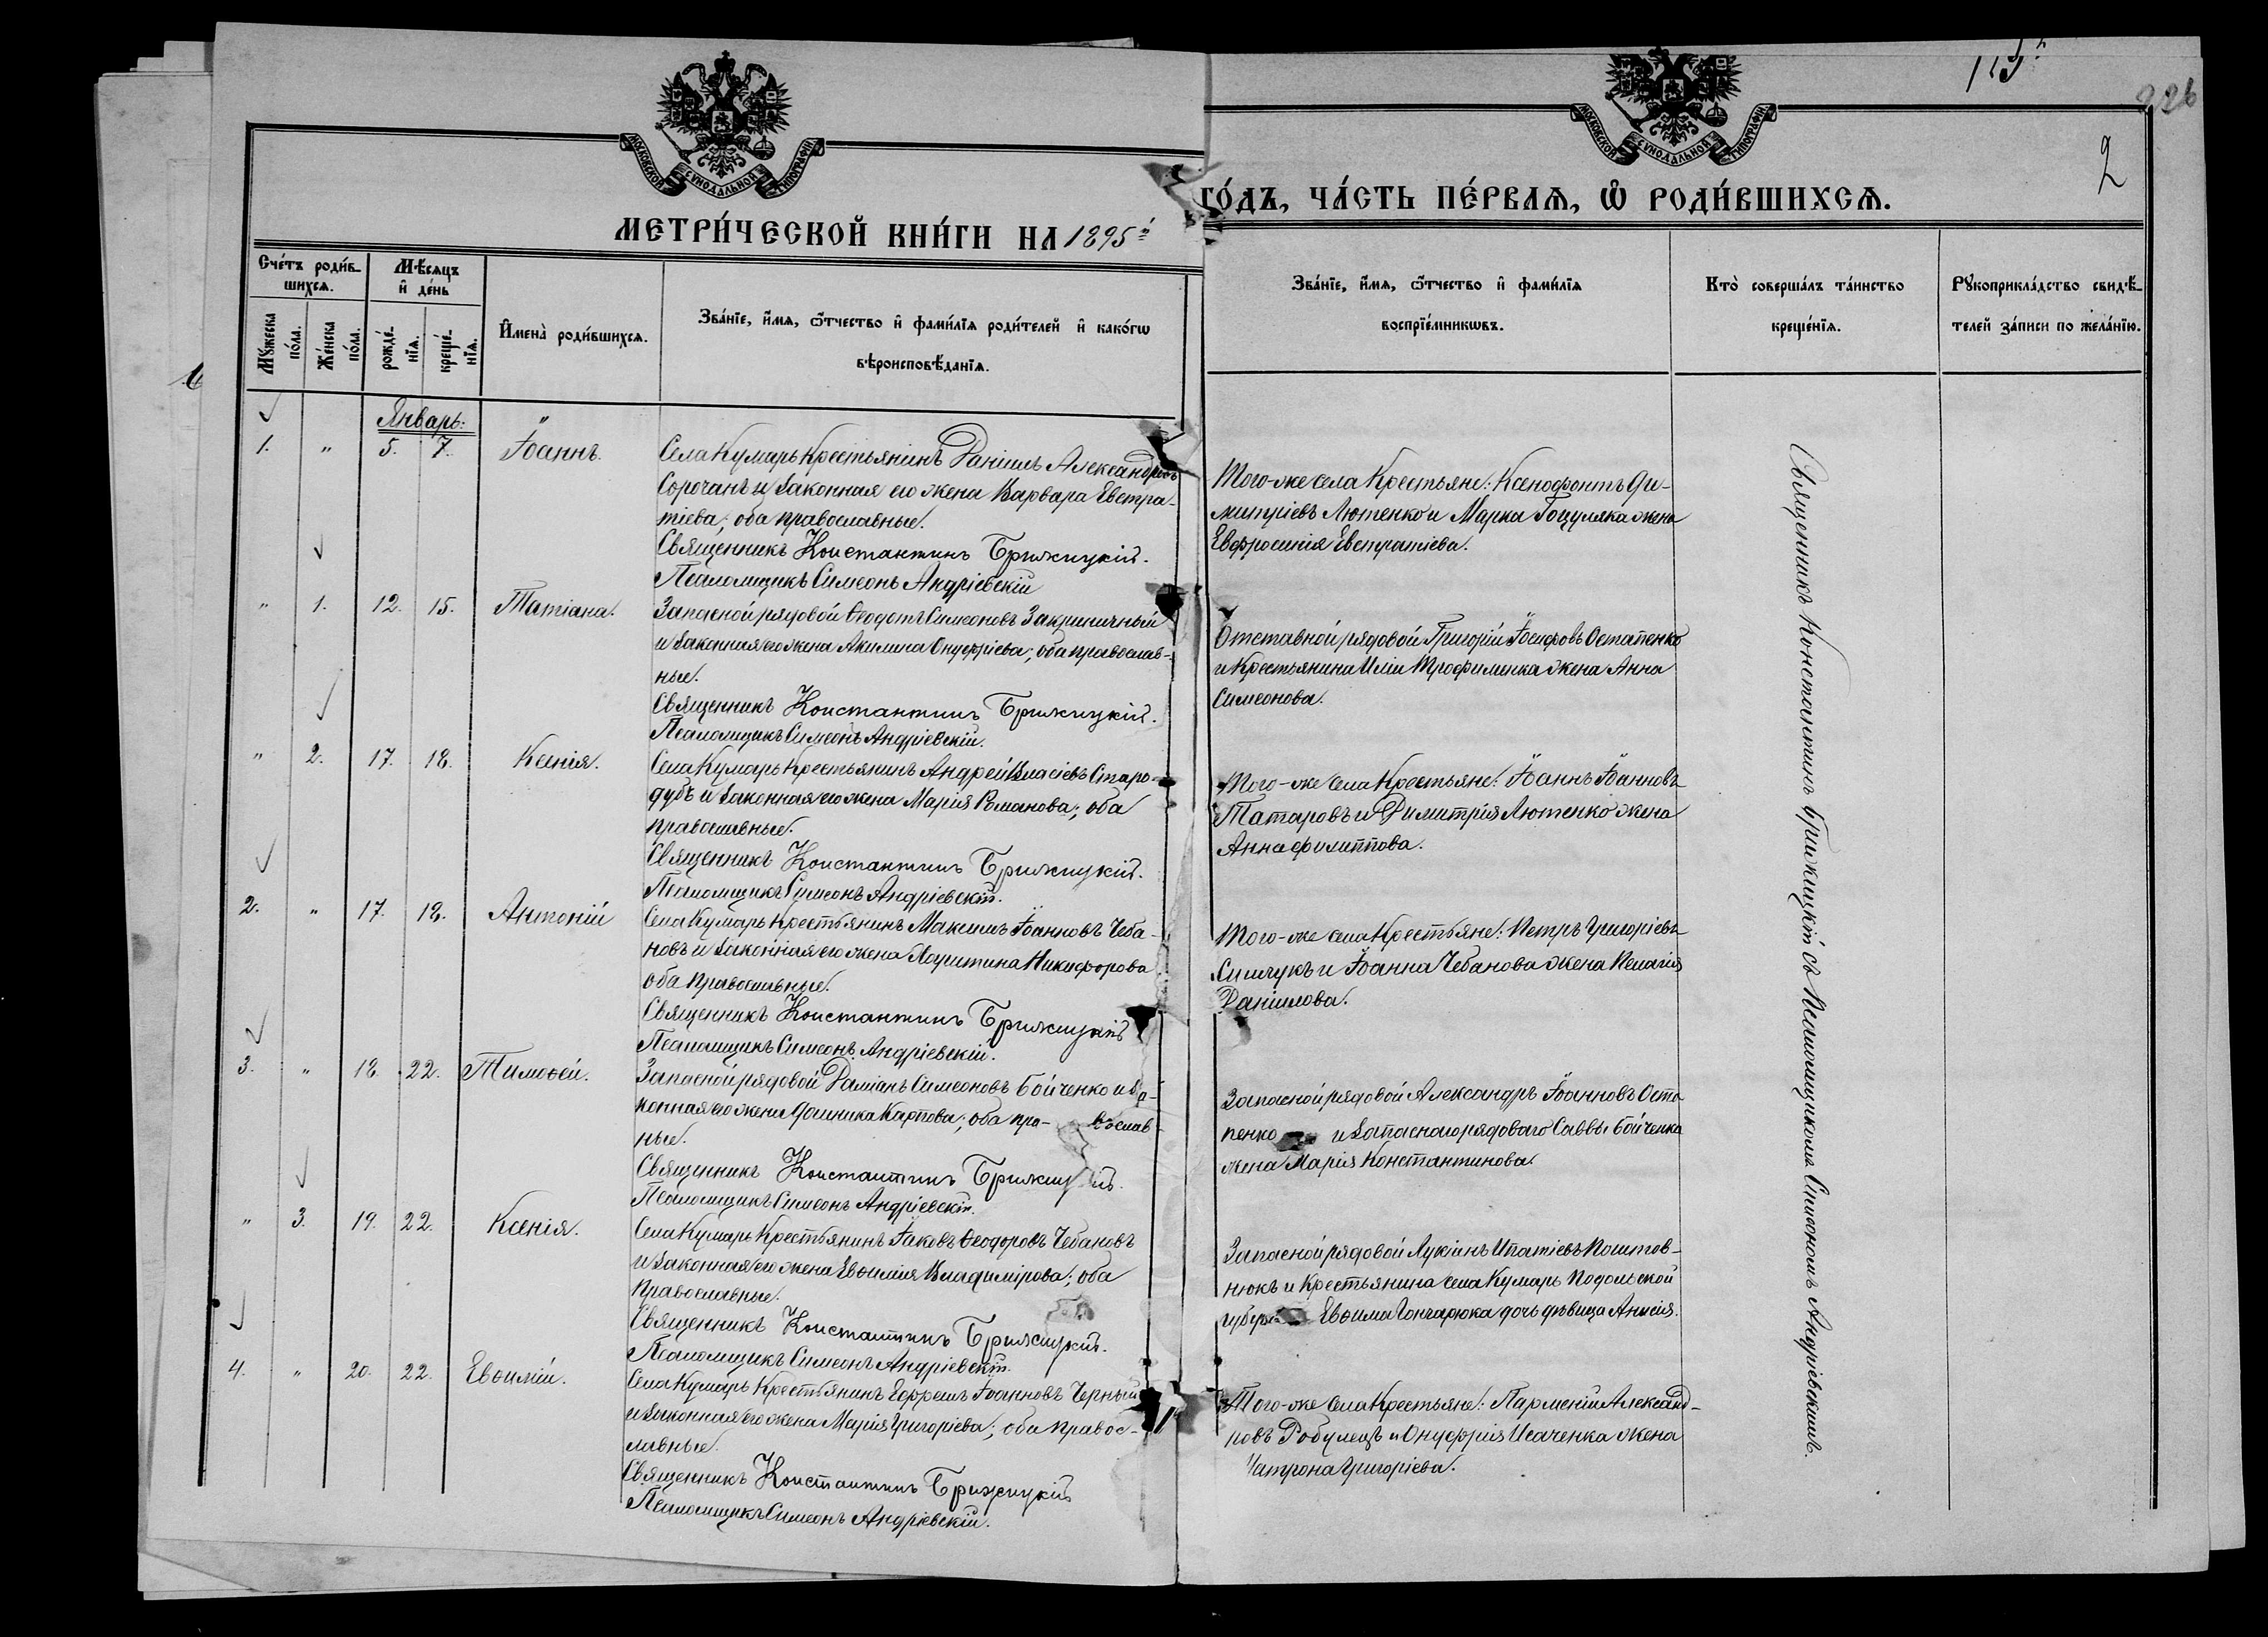 115
226
2
МОСКОВСКОЙ СѴНОДАЛЬНОЙ ТИПОГРАФІИ
МОСКОВСКОЙ СѴНОДАЛЬНОЙ ТИПОГРАФІИ
МЕТРИ́ЧЕСКОЙ КНИ́ГИ НА 1895й
ГО́ДЪ, ЧА́СТЬ ПЕ́РВАѦ, Ѡ҆ РОДИ́ВШИХСѦ.
Сче́тъ роди́в-
шихсѧ.
Мꙋжеска по́ла.
Же́нска по́ла.
Мѣ́сѧцъ
и҆ де́нь
рожде́-
нїѧ.
креще́-
нїѧ.
И҆мена̀ роди́вшихсѧ.
Зва́нїе, и҆́мѧ, ѻ҆́тчество и҆ фами́лїѧ роди́телей и҆ како́гѡ
вѣроисповѣ́данїѧ.
Зва́нїе, и҆́мѧ, ѻ҆́тчество и҆ фами́лїѧ
воспрїе́мникѡвъ.
Кто̀ соверша́лъ та́инство
креще́нїѧ.
Рꙋкоприкла́дство свидѣ́-
телей за́писи по жела́нїю.
Январь:
1. " 5. 7. Іоаннъ.
Села Кумарь Крестьянинъ Даніилъ Александровъ
Сорочанъ и законная его жена Варвара Евстра-
тіева; оба православные.
Священникъ Константинъ Брижицкій.
Псаломщикъ Симеонъ Андріевскій
Того-же села Крестьяне: Ксенофонтъ Ди-
митріевъ Лютенко и Марка Гоцуляка жена
Евфросинія Евстратіева.
" 1. 12. 15. Татіана.
Запасной рядовой Ѳеодотъ Симеоновъ Закриничный
и законная его жена Акилина Онуфріева; оба православ-
ные.
Священникъ Константинъ Брижицкій.
Псаломщикъ Симеонъ Андріевскій.
Отставной рядовой Григорій Іосифовъ Остапенко
и Крестьянина Иліи Трофименка жена Анна
Симеонова.
" 2. 17. 18. Ксенія.
Села Кумарь Крестьянинъ Андрей Власіевъ Старо-
дубъ и законная его жена Марія Романова; оба
православные.
Священникъ Константинъ Брижицкій.
Псаломщикъ Симеонъ Андріевскій.
Того-же села Крестьяне: Іоаннъ Іоанновъ
Татаровъ и Димитрія Лютенко жена
Анна Филиппова.
2. " 17. 18. Антоній
Села Кумарь Крестьянинъ Максимъ Іоанновъ Чеба-
новъ и законная его жена Іустина Никифорова
оба православные.
Священникъ Константинъ Брижицкій
Псаломщикъ Симеонъ Андріевскій.
Того-же села Крестьяне: Петръ Григоріевъ
и Іоанна Чебанова жена Пелагія
Даніилова.
3. " 18. 22. Тимоѳей.
Запасной рядовой Даміанъ Симеоновъ Бойченко и за-
конная его жена Домника Карпова; оба пра- вослав-
ные.
Священникъ Константинъ Брижицкій.
Псаломщикъ Симеонъ Андріевскій.
Запасной рядовой Александръ Іоанновъ Оста
пенко и запаснаго рядоваго Саввы Бойченка
жена Марія Константинова.
" 3. 19. 22. Ксенія.
Села Кумарь Крестьянинъ Іаковъ Ѳеодоровъ Чебановъ
и законная его жена Евѳимія Владимірова; оба
православные.
Священникъ Константинъ Брижицкій.
Псаломщикъ Симеонъ Андріевскій.
Запасной рядовой Лукіанъ Ипатіевъ Поштов-
нюкъ и Крестьянина села Кумарь Подольской
губер Евѳима Гончарюка дочь дѣвица Анисія.
4. " 20. 22. Евѳимій.
Села Кумарь Крестьянинъ Ефремъ Іоанновъ Черный
и законная его жена Марія Григоріева; оба правос-
лавные.
Священникъ Константинъ Брижицкій
Псаломщикъ Симеонъ Андріевскій.
Того-же села Крестьяне: Парменій Александ-
ровъ Робулецъ и Онуфрія Исаченка жена
Матрона Григоріева.
Священникъ Константинъ Брижицкій съ Псаломщикомъ Симеономъ Андріевскимъ.